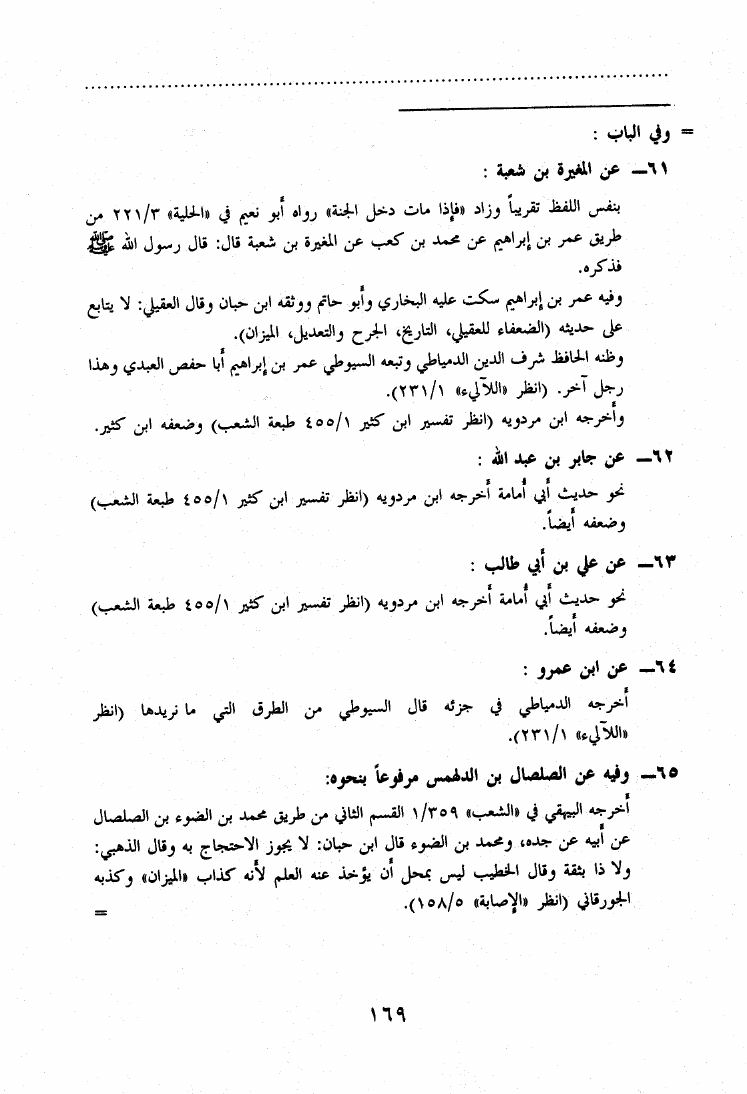 ................................................................................
= وفي الباب :
٦١ـ عن المغيرة بن شعبة :
بنفس اللفظ تقريباً وزاد «فإذا مات دخل الجنة» رواه أبو نعيم في «الحلية» ٢٢١/٣ من
طريق عمر بن إبراهيم عن محمد بن كعب عن المغيرة بن شعبة قال: قال رسول الله ﷺ
فذكره.
وفيه عمر بن إبراهيم سكت عليه البخاري وأبو حاتم ووثقه ابن حبان وقال العقيلي: لا يتابع
على حديثه (الضعفاء للعقيلي، التاريخ، الجرح والتعديل، الميزان).
وظنه الحافظ شرف الدين الدمياطي وتبعه السيوطي عمر بن إبراهيم أبا حفص العبدي وهذا
رجل آخر. (انظر «اللآليء» ٢٣١/١).
وأخرجه ابن مردويه (انظر تفسير ابن كثير ٤٥٥/١ طبعة الشعب) وضعفه ابن كثير.
٦٢ـ عن جابر بن عبد الله :
نحو حديث أبي أمامة أخرجه ابن مردويه (انظر تفسير ابن كثير ٤٥٥/١ طبعة الشعب)
وضعفه أيضاً.
٦٣ـ عن علي بن أبي طالب :
نحو حديث أبي أمامة أخرجه ابن مردويه (انظر تفسير ابن كثير ٤٥٥/١ طبعة الشعب)
وضعفه أيضاً.
٦٤ـ عن ابن عمرو :
أخرجه الدمياطي في جزئه قال السيوطي من الطرق التي ما نريدها (انظر
«اللآليء» ٢٣١/١).
٦٥ـ وفيه عن الصلصال بن الدلهمس مرفوعاً بنحوه:
أخرجه البيهقي في «الشعب» ١/٣٥٩ القسم الثاني من طريق محمد بن الضوء بن الصلصال
عن أبيه عن جده، ومحمد بن الضوء قال ابن حبان: لا يجوز الاحتجاج به وقال الذهبي:
ولا ذا بثقة وقال الخطيب ليس بمحل أن يؤخذ عنه العلم لأنه كذاب «الميزان» وكذبه
الجورقاني (انظر «الإصابة» ١٥٨/٥).
=
١٦٩